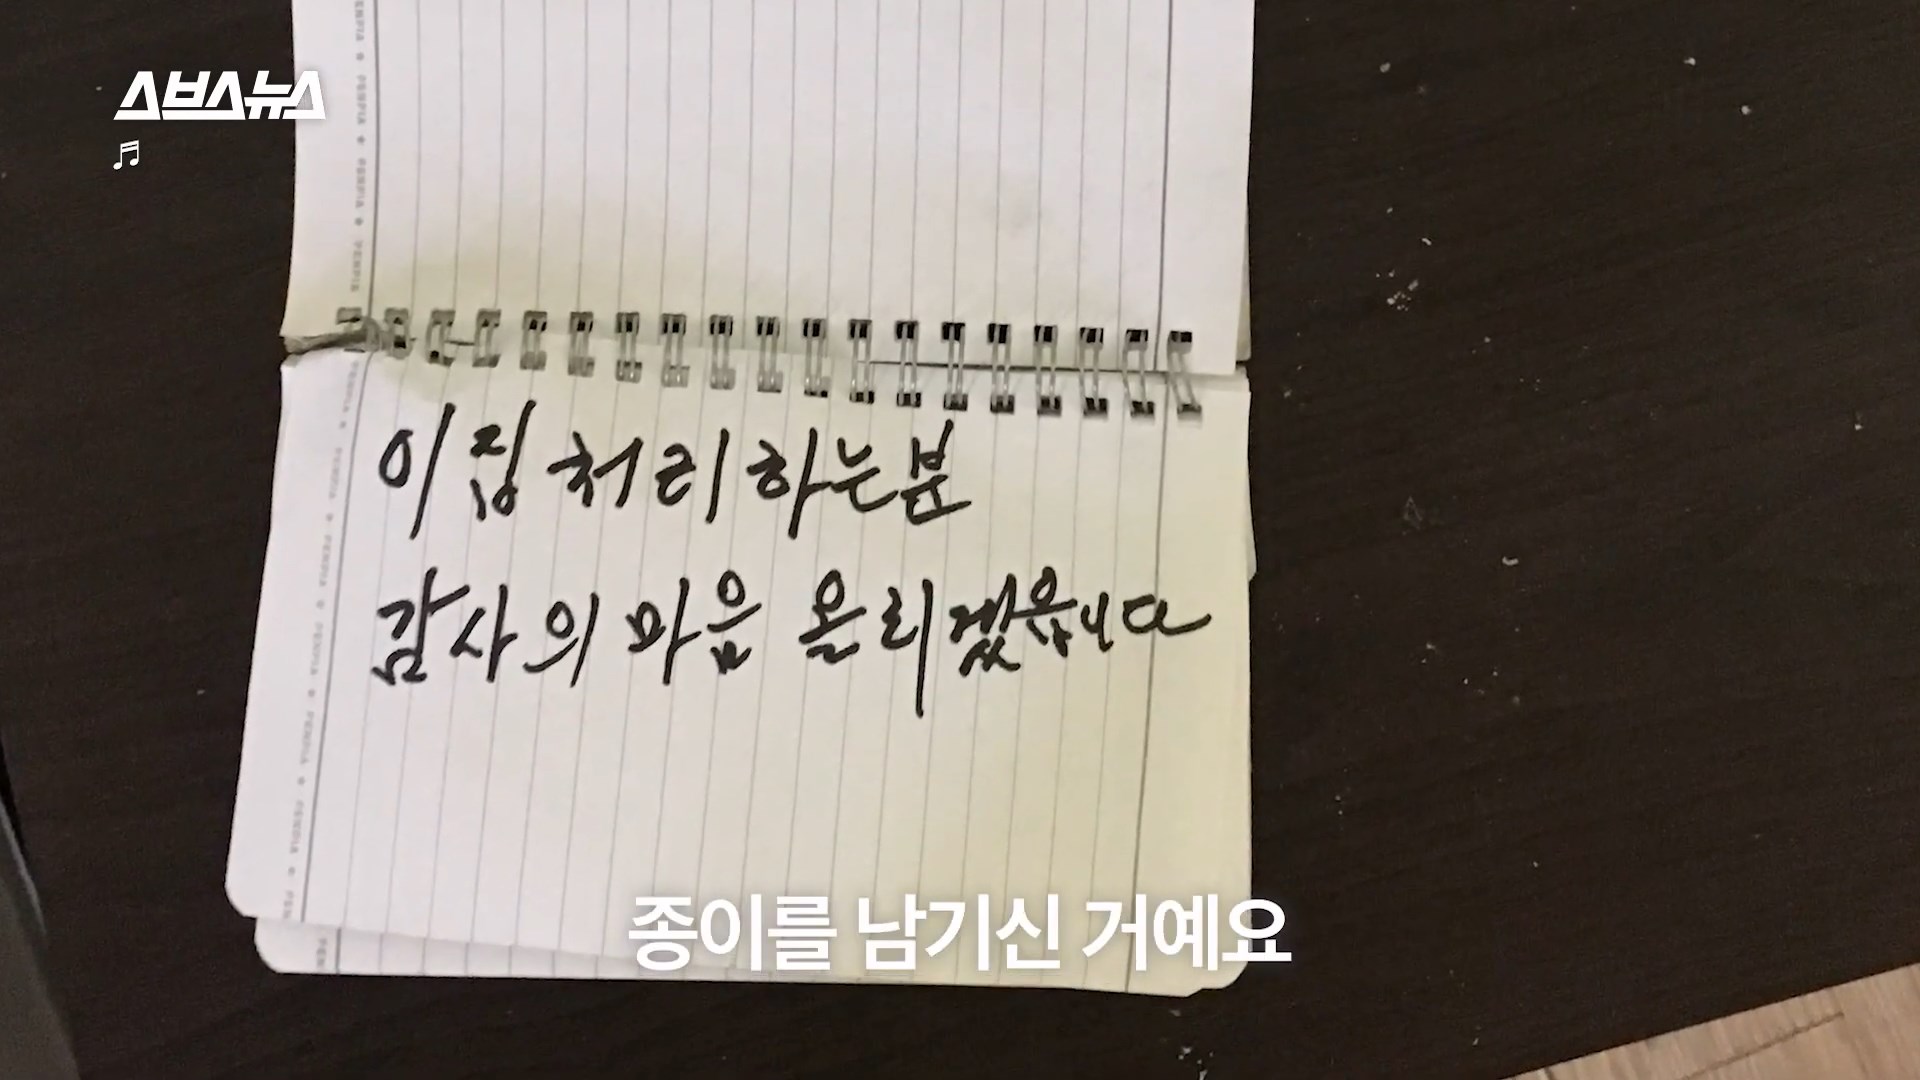 스브스뉴스
이 집 처리하는분
감사의 마음 올리겠읍니다
종이를 남기신 거예요
PENPIA